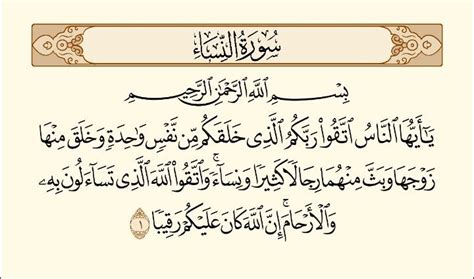 سُورَةُ النِّسَاءِ
بِسْمِ ٱللَّهِ ٱلرَّحْمَٰنِ ٱلرَّحِيمِ
يَٰٓأَيُّهَا ٱلنَّاسُ ٱتَّقُوا۟ رَبَّكُمُ ٱلَّذِى خَلَقَكُم مِّن نَّفْسٍ وَٰحِدَةٍ وَخَلَقَ مِنْهَا
زَوْجَهَا وَبَثَّ مِنْهُمَا رِجَالًا كَثِيرًا وَنِسَآءً ۚ وَٱتَّقُوا۟ ٱللَّهَ ٱلَّذِى تَسَآءَلُونَ بِهِۦ
وَٱلْأَرْحَامَ ۚ إِنَّ ٱللَّهَ كَانَ عَلَيْكُمْ رَقِيبًا ١